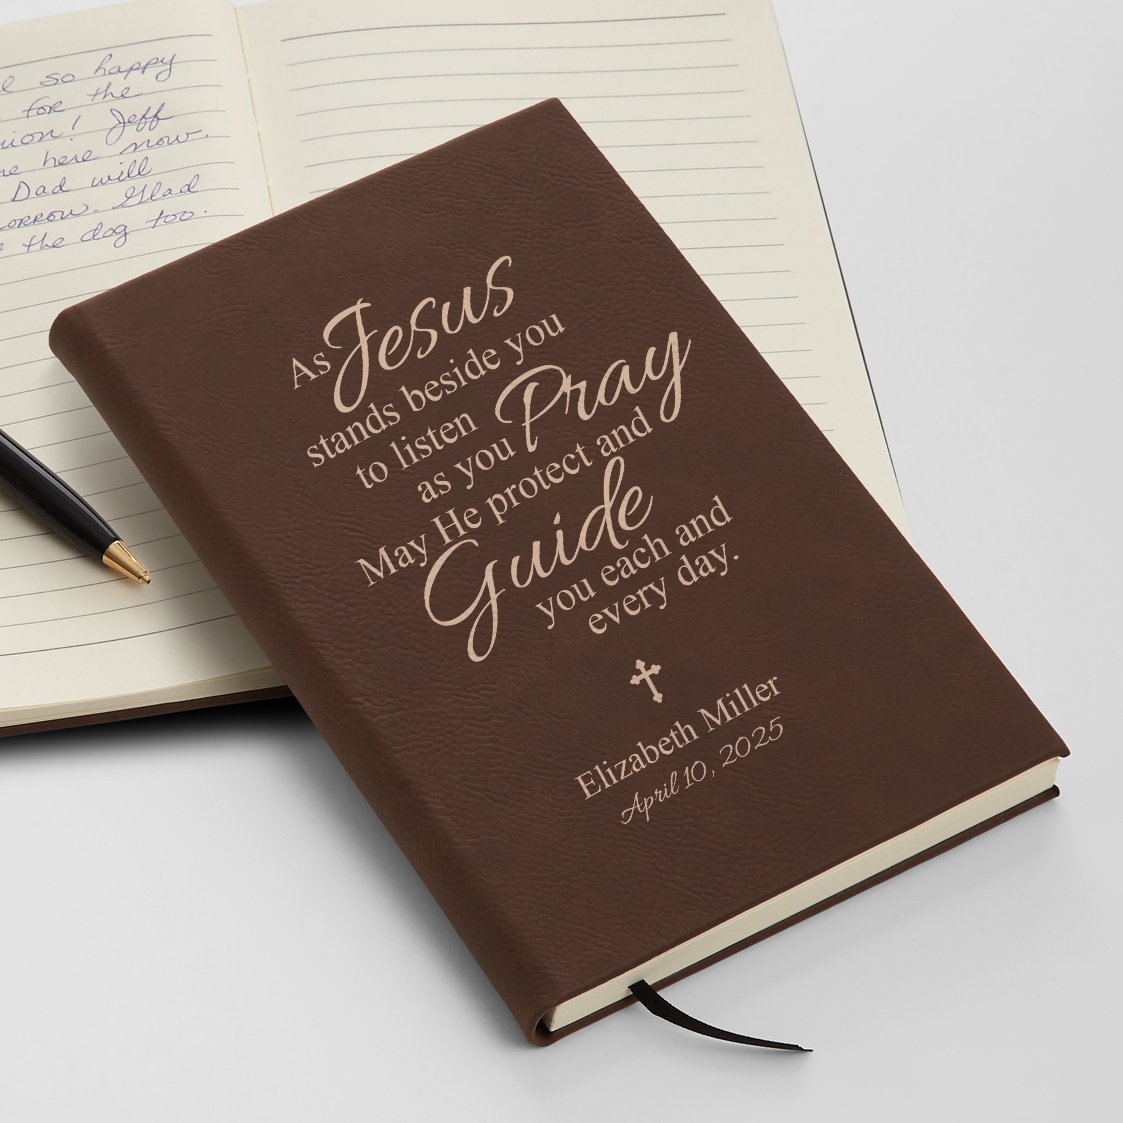 so happy
for the
Jeff
here now.
Dad will
Glad
the dog too.
As Jesus
stands beside you
to listen
as you Pray
May He protect and
Guide
you each and
every day.
Elizabeth Miller
April 10, 2025